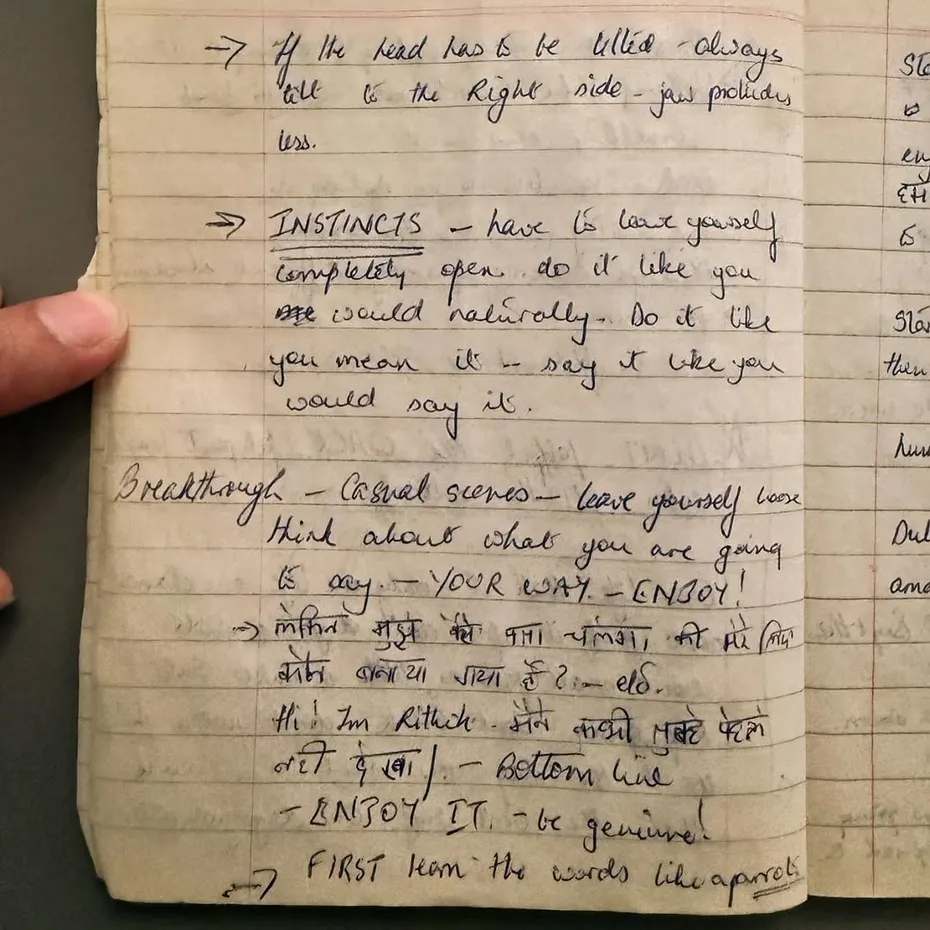 → If the head has to be tilted - always
tilt to the Right side - jaw protudes
less.
→ INSTINCTS - have to leave yourself
completely open. do it like you
would naturally. Do it like
you mean it - say it like you
would say it.
Breakthrough - Casual scenes - leave yourself loose
think about what you are going
to say. - YOUR WAY. - ENJOY!
→ लेकिन मुझे कैसे पता चलेगा, की मेरे लिए
कौन बनाया गया है? - etc.
Hi! Im Rithik - मैने कभी तुम्हे पेहले
नही देखा। - Bottom line
- ENJOY IT. - be genuine!
→ FIRST learn the words like a parrot
Sta
to
en
to
Star
then
hun
Dul
and